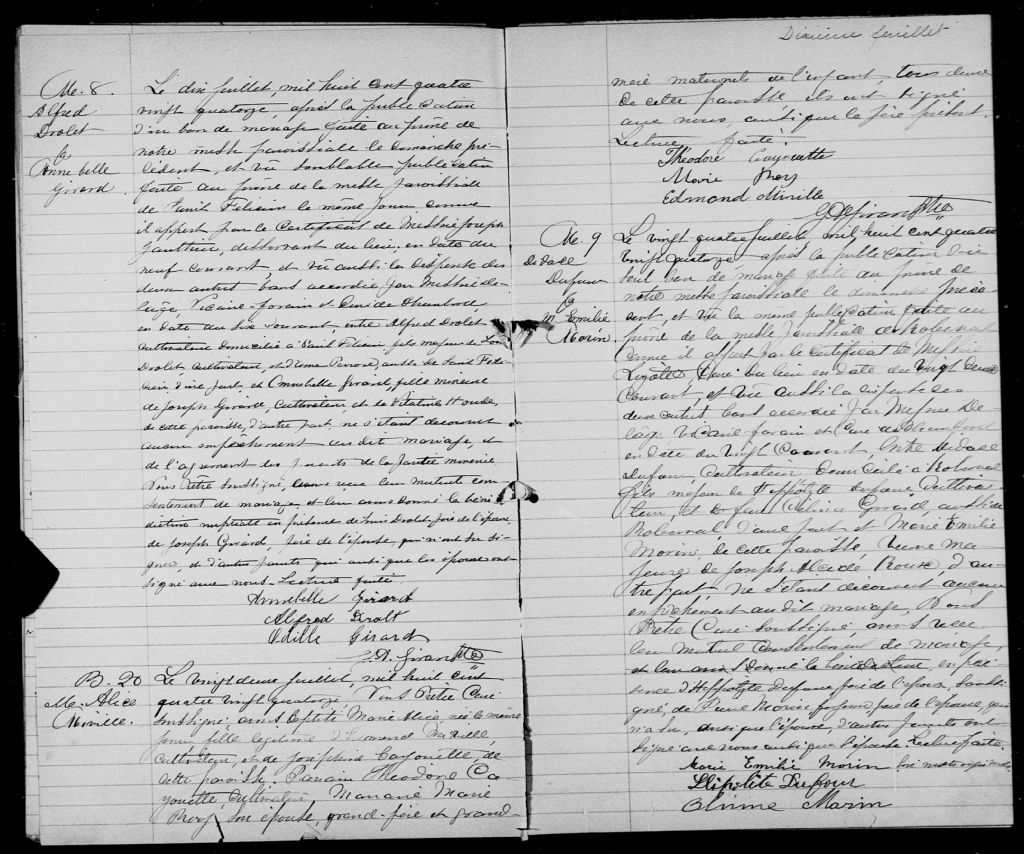 M. 8.
Alfred
Drolet
&
Annabelle
Girard
Le dix juillet, mil huit cent quatre
vingt quatorze, après la publication
d'un ban de mariage faite au prône de
notre messe paroissiale le dimanche pré-
cédent, et vû semblable publication
faite au prône de la messe paroissiale
de Saint Félicien le même jour comme
il appert par le certificat de Messire Joseph
desservant du lieu, en date du
neuf courant, et vû aussi la dispense des
deux autres bans accordée par Messire De-
lâge, Vicaire-forain et Curé de Chambord,
en date du six courant, entre Alfred Drolet
cultivateur domicilié à Saint Félicien fils majeur de Louis
Drolet cultivateur, et d'Anne aussi de Saint Féli-
cien d'une part, et Annabelle Girard, fille mineure
de Joseph Girard, cultivateur, et de Vitaline Houde,
de cette paroisse, d'autre part, ne s'étant découvert
aucun empêchement au dit mariage, et
de l'agrément des parents de la partie mineure
Nous Prêtre soussigné, avons reçu leur mutuel con-
sentement de mariage et leur avons donné la béné-
diction nuptiale en présence de Louis Drolet père de l'époux,
de Joseph Girard, père de l'épouse, qui n'ont su si-
gner, et d'autres parents qui ainsi que les époux ont
signé avec nous. Lecture faite
Annabelle Girard
Alfred Drolt
Odille Girard
Girard Ptre
B. 20
M. Alice
Miville.
Le vingt deux juillet, mil huit cent
quatre vingt quatorze, Nous Prêtre Curé
soussigné avons baptisé Marie Alice, née le même
jour fille légitime d'Edmond Miville,
cultivateur, et de Joséphine Cayouette, de
cette paroisse. Parrain Théodore Ca-
youette, cultivateur Marraine Marie
Roy, son épouse, grand-père et grand-
Dixième feuillet
mère maternels de l'enfant, tous deux
de cette paroisse ils ont signé
avec nous, ainsi que le père présent.
Lecture faite.
Théodore Cayouette
Marie Roy
Edmond Miville
Girard Ptre
M. 9
Dufour
&
M. Emilie
Morin.
Le vingt quatre juillet, mil huit cent quatre
vingt quatorze après la publication d'un
seul ban de mariage faite au prône de
notre messe paroissiale le dimanche précé-
dent, et vû la même publication faite au
prône de la messe paroissiale de Roberval
comme il appert par le certificat de Messire
Lizotte, Curé du lieu en date du vingt deux
courant, et vû aussi la dispense des
deux autres bans accordée par Messire De-
lâge, Vicaire-forain et Curé de Chambord
en date du vingt courant, entre
Dufour, cultivateur domicilié à Roberval
fils majeur de Hippolyte Dufour, cultiva-
teur, et de feue Girard, aussi de
Roberval, d'une part et Marie Emilie
Morin, de cette paroisse, veuve ma-
jeure de Joseph d'au-
tre part, ne s'étant découvert aucun
empêchement au dit mariage, Nous
Prêtre Curé soussigné, avons reçu
leur mutuel consentement de mariage,
et leur avons donné la bénédiction en pré-
sence d'Hippolyte Dufour père de l'époux, soussi-
gné, de Morin père de l'épouse, qui
n'a su, ainsi que l'époux, d'autres parents ont
signé avec nous ainsi que l'épouse. Lecture faite
Marie Emilie Morin
Hipolite Dufour
Morin